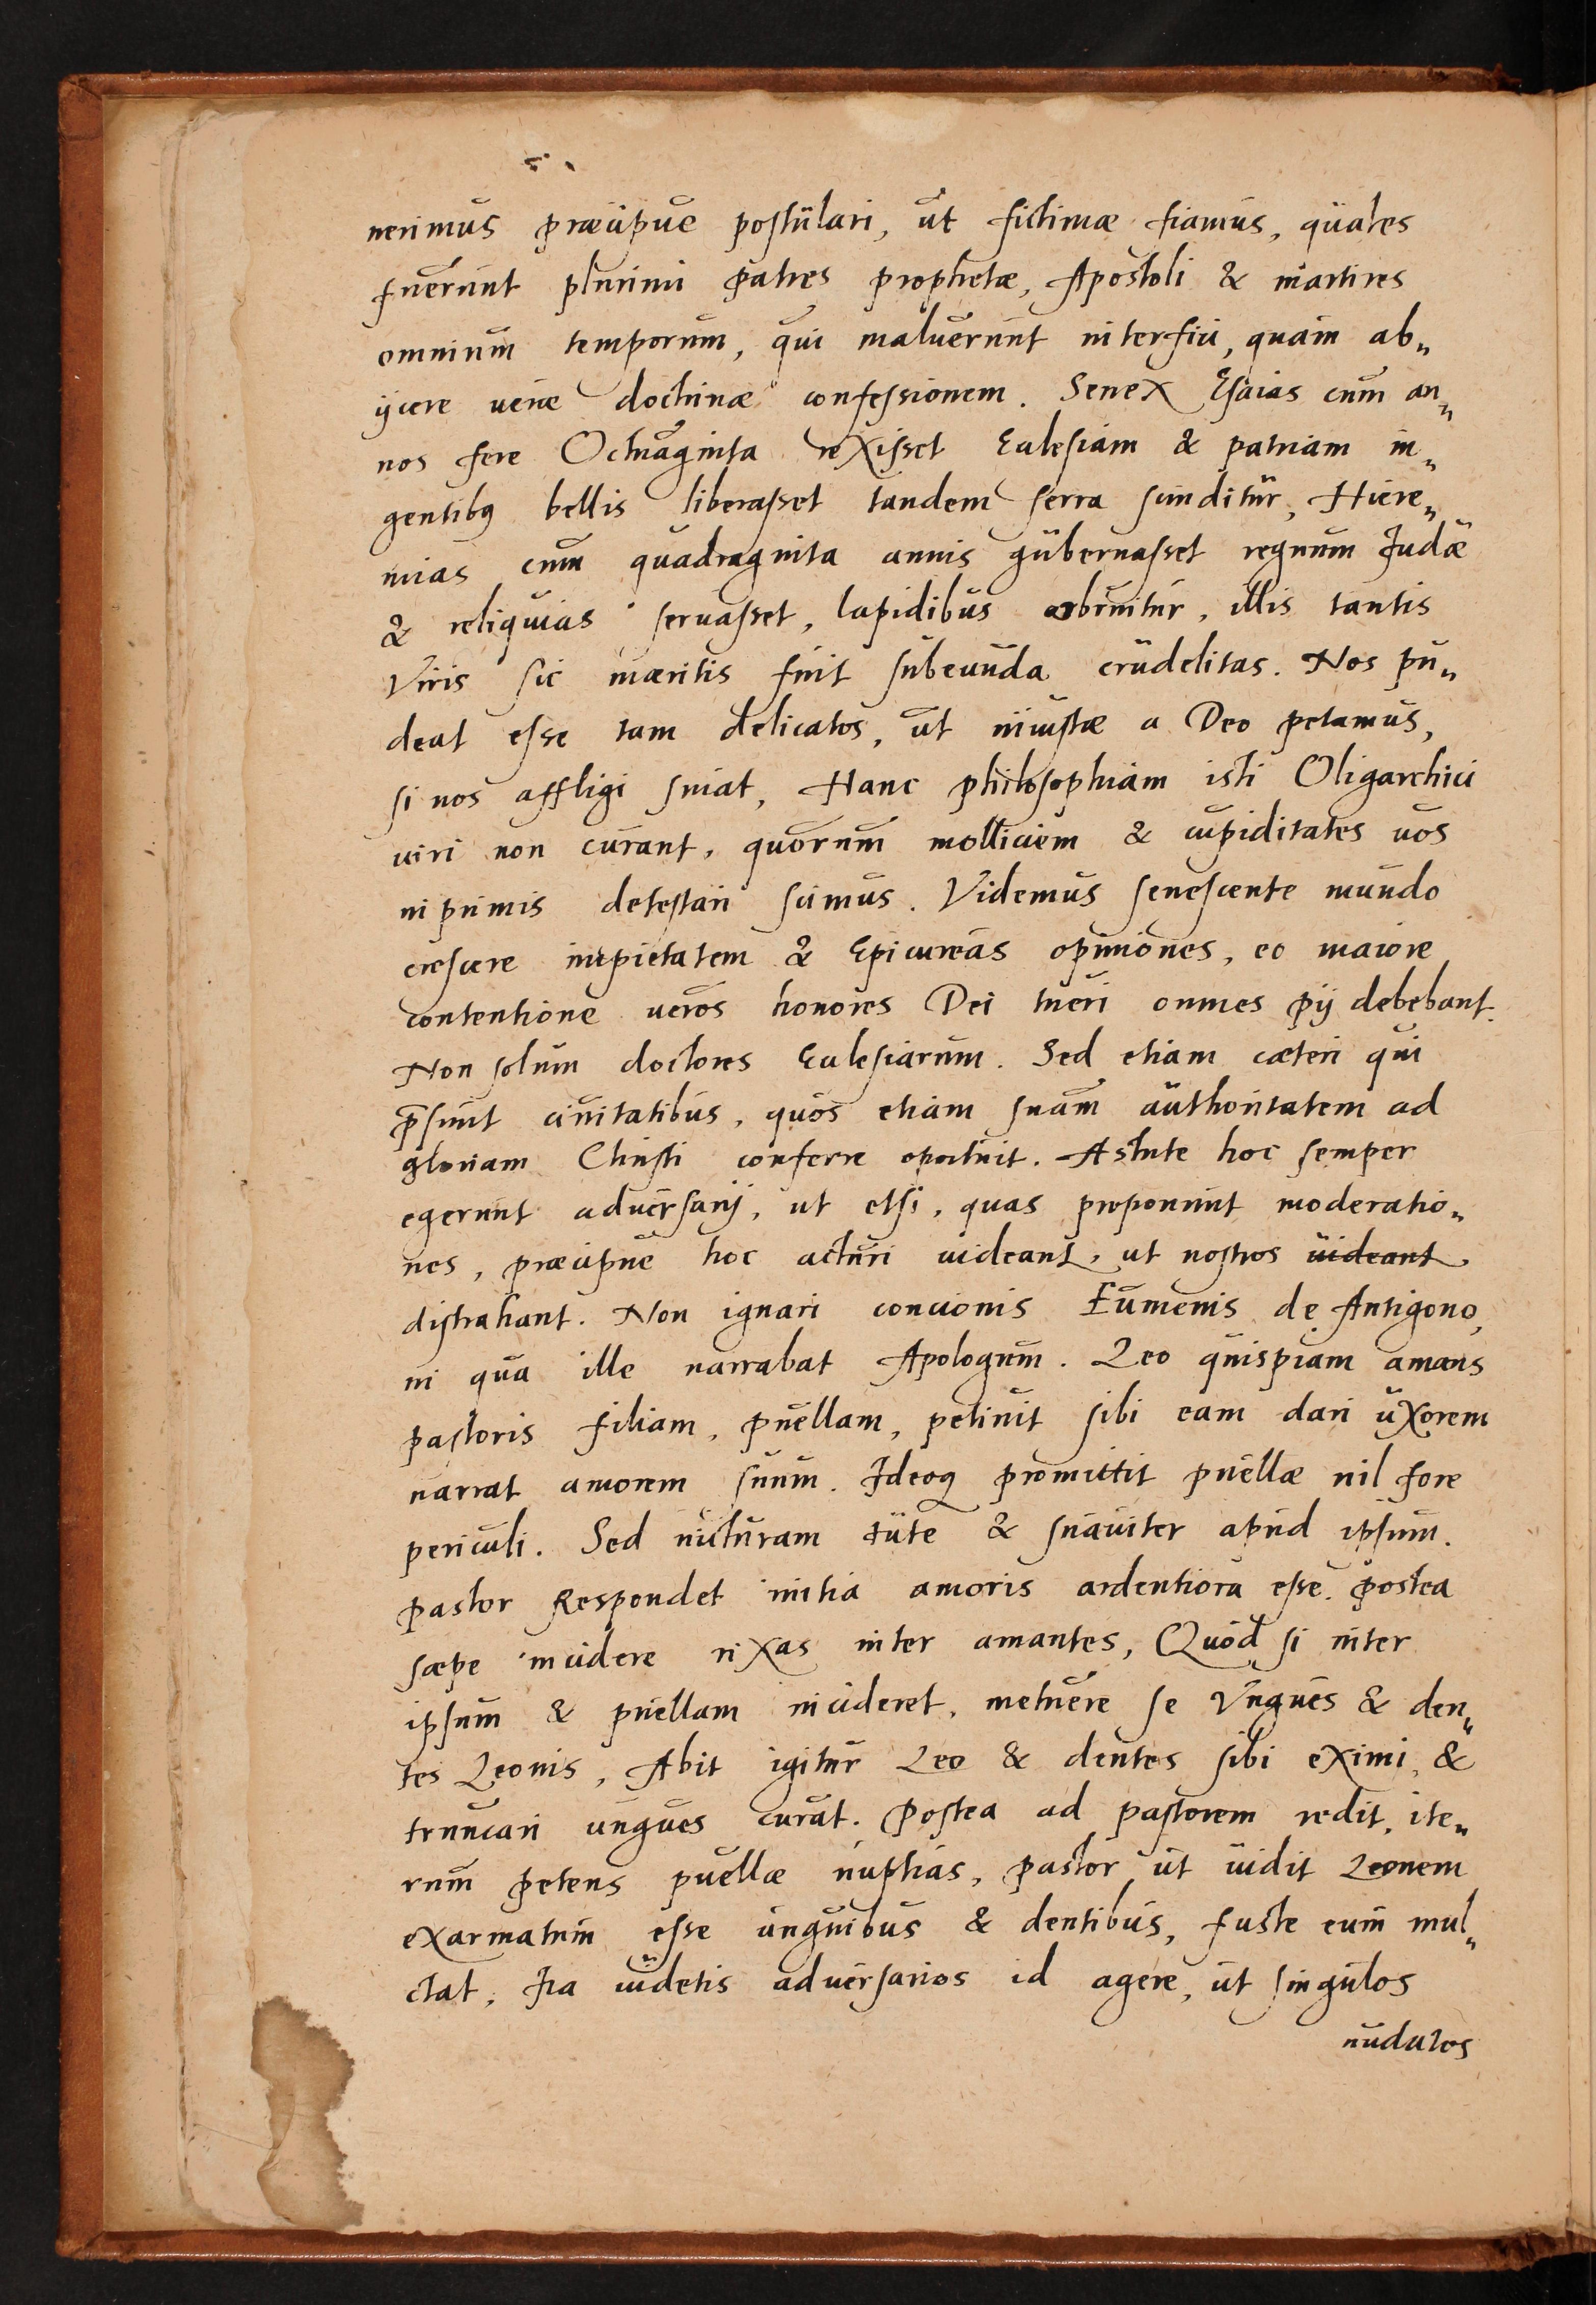 nerimus præcipue postulari, ut fictimæ fiamus, quales
fuerunt plurimi patres prophetæ, Apostoli & martires
omnium temporum, qui maluerunt interfici, quam ab„
ijcere veræ doctrinæ confessionem. Senex Esaias cum an„
nos fere Octuaginta rexisset Ecclesiam & patriam in„
gentibq bellis liberasset tandem serra scinditur, Hiere„
mias cum quadraginta annis gubernasset regnum Iudæ
& reliquias seruasset, lapidibus obruitur, illis tantis
Viris sic mæritis fuit subeunda crudelitas. Nos pu„
deat esse tam delicatos, ut iniustæ a Deo petamus,
si nos affligi sinat, Hanc philosophiam isti Oligarchici
uiri non curant, quorum molliciem & cupiditates uos
inprimis detestari scimus. Videmus senescente mundo
crescere impietatem & Epicureas opiniones, eo maiore
contentione ueros honores Dei tueri omnes pij debebant.
Non solum doctores Ecclesiarum. Sed etiam cæteri qui
p̄sunt ciuitatibus, quos etiam suam authoritatem ad
gloriam Christi conferre oportuit. Astute hoc semper
egerunt aduersarij, ut etsi, quas proponunt moderatio„
nes, præcipue hoc acturi uideant, ut nostros uideant
distrahant. Non ignari concionis Eumenis de Antigono,
in qua ille narrabat Apologum. Leo quispiam amans
pastoris filiam, puellam, petiuit sibi eam dari uxorem
narrat amorem suum. Ideoq promittit puellæ nil fore
periculi. Sed uicturam tute & suauiter apud ipsum.
pastor Respondet initia amoris ardentiora esse. postea
sæpe incidere rixas inter amantes, Quod si inter
ipsum & puellam incideret, metuere se Vngues & den„
tes Leonis, Abit igitur Leo & dentes sibi eximi, &
truncari ungues curat. Postea ad pastorem redit, ite„
rum petens puellæ nuptias, pastor ut uidit Leonem
exarmatum esse unguibus & dentibus, fuste eum mul„
ctat, Ita uidetis aduersarios id agere, ut singulos
nudatos